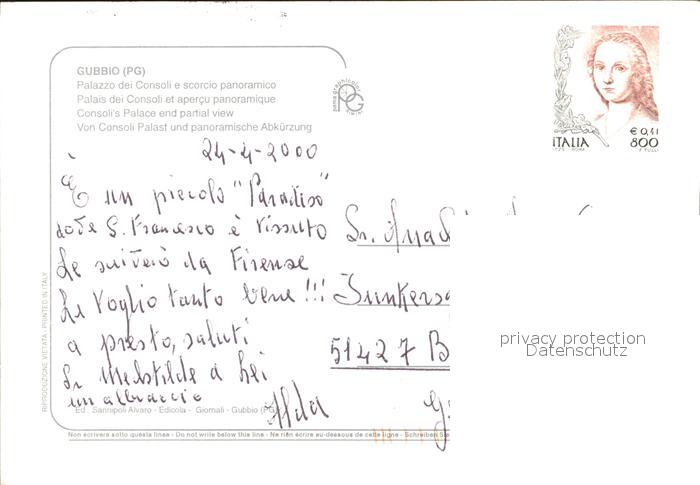 GUBBIO (PG)
Palazzo dei Consoli e scorcio panoramico
Palais dei Consoli et aperçu panoramique
Consoli's Palace end partial view
Von Consoli Palast und panoramische Abkürzung
24-4-2000
È un piccolo "Paradiso"
dove S. Francesco è vissuto
Le scriverò da Firense
Le voglio tanto bene !!!
a presto, saluti
Sr Melstilde a Lei
un abbraccio
Alda
Ed. Sannipoli Alvaro - Edicola - Giornali - Gubbio (PG)
RIPRODUZIONE VIETATA - PRINTED IN ITALY
Non scrivere sotto questa linea - Do not write below this line - Ne rien écrire au-dessous de cette ligne - Schreiben Sie
€ 0,41
ITALIA 800
Sr. Anna
Junkers
51427 B
privacy protection
Datenschutz